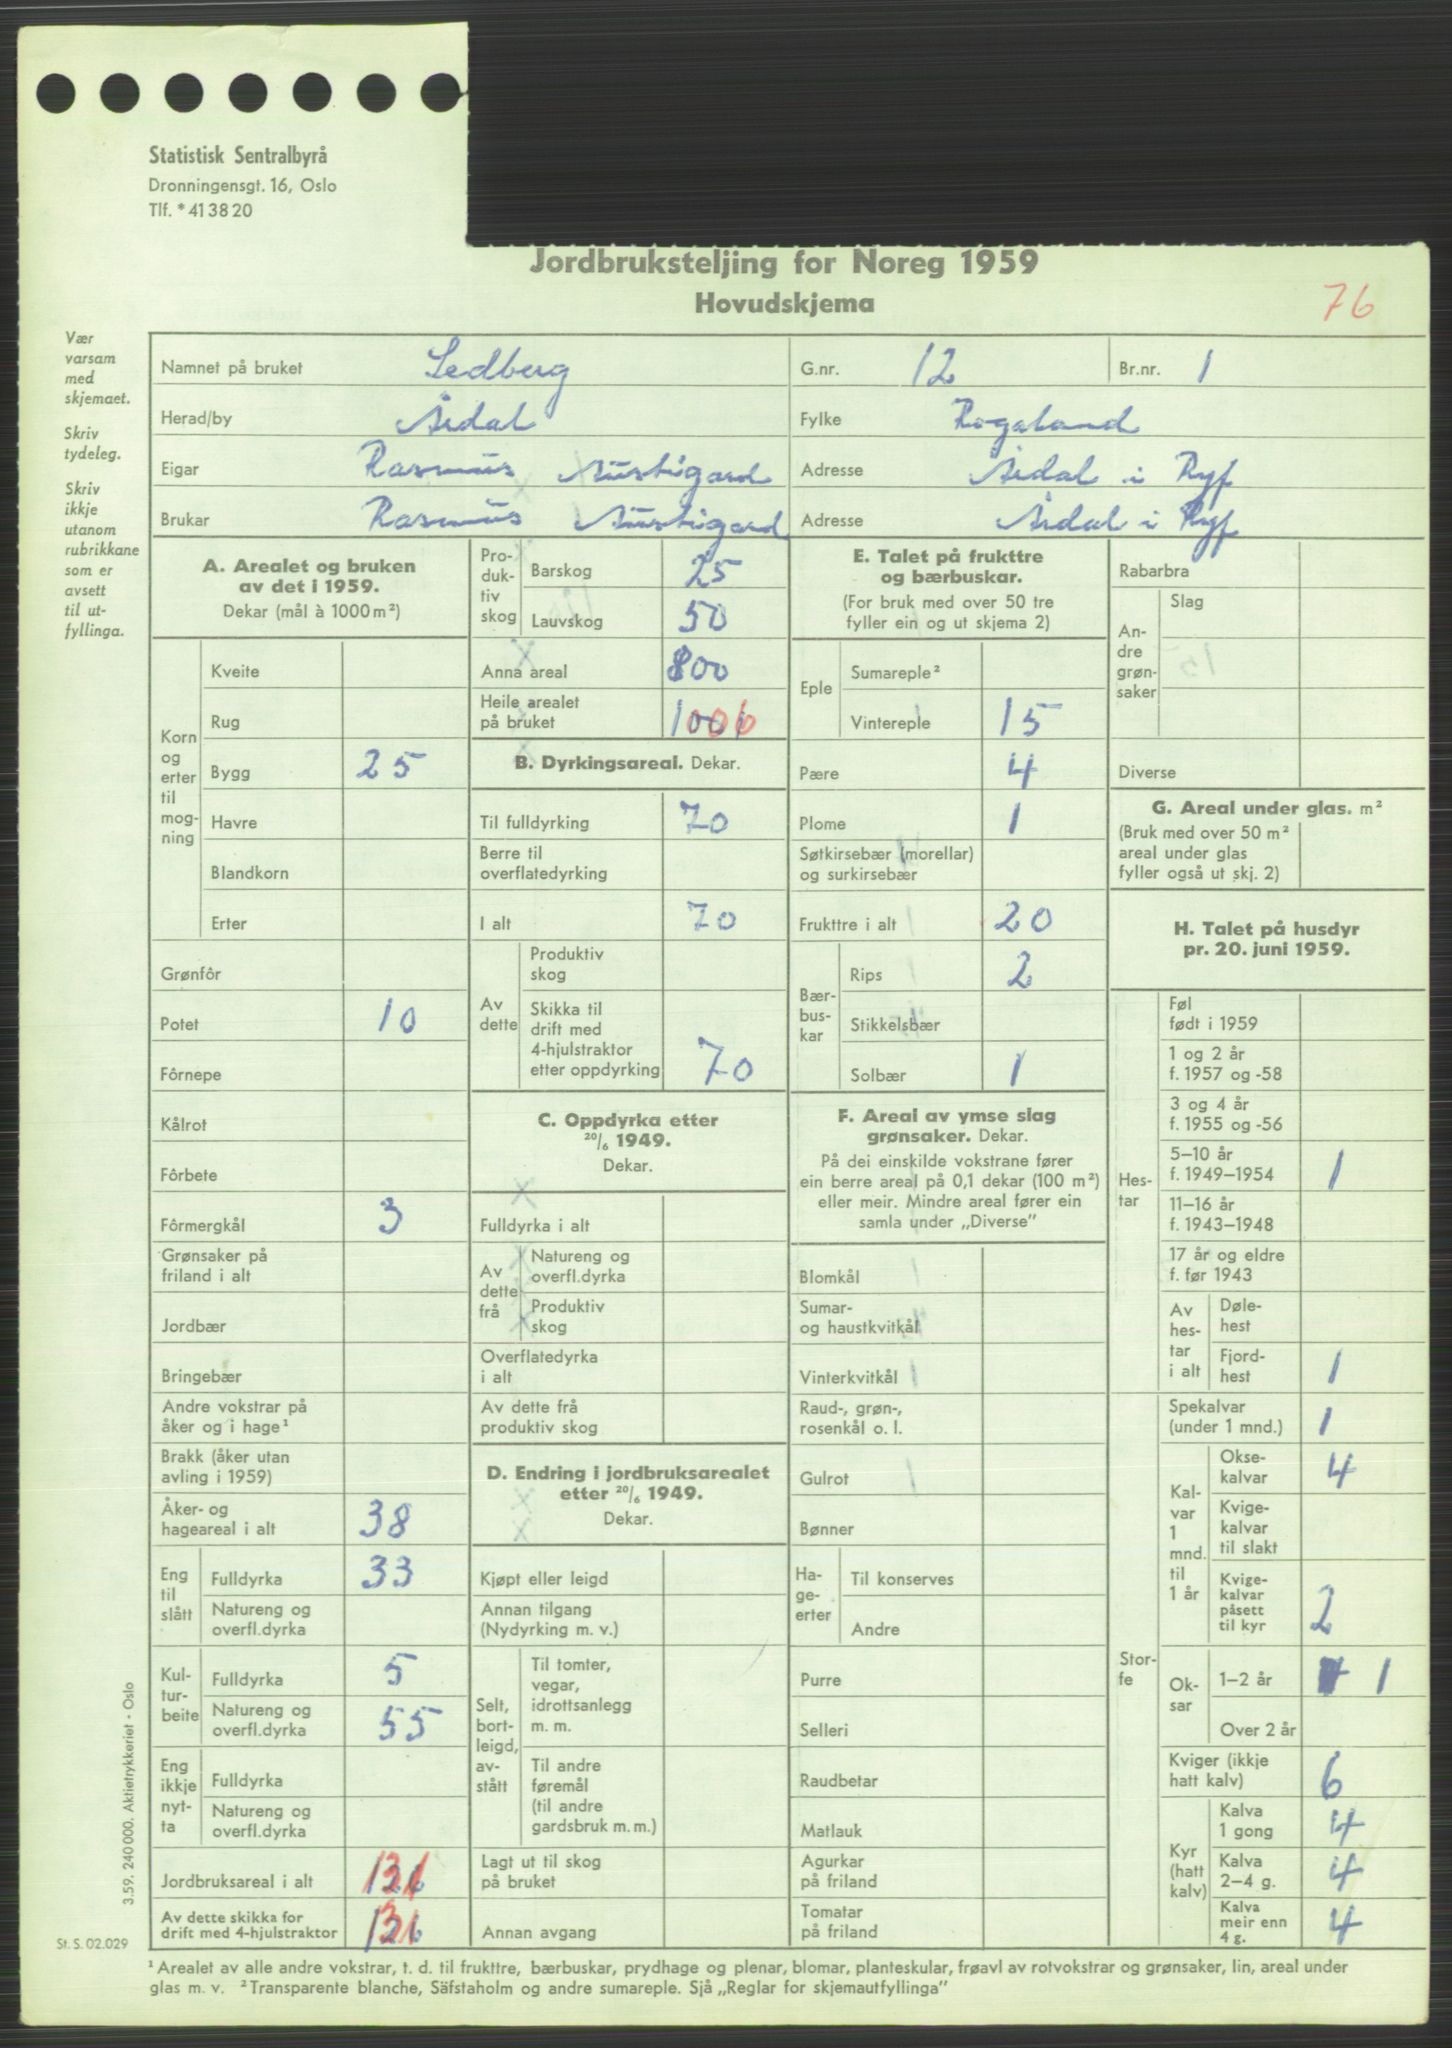 Statistisk Sentralbyrå
Dronningensgt. 16, Oslo
Tlf. *41 38 20
Jordbruksteljing for Noreg 1959
Hovudskjema
76
Vær
varsam
med
skjemaet.
Skriv
tydeleg.
Skriv
ikkje
utanom
rubrikkane
som er
avsett
til ut-
fyllinga.
Namnet på bruket Sedberg G.nr. 12 Br.nr. 1
Herad/by Årdal Fylke Rogaland
Eigar Rasmus Austigard Adresse Årdal i Ryf
Brukar Rasmus Austigard Adresse Årdal i Ryf
A. Arealet og bruken
av det i 1959.
Dekar (mål à 1000 m²)
Korn og erter til mog-ning
Kveite
Rug
Bygg 25
Havre
Blandkorn
Erter
Grønfôr
Potet 10
Fôrnepe
Kålrot
Fôrbete
Fôrmergkål 3
Grønsaker på
friland i alt
Jordbær
Bringebær
Andre vokstrar på
åker og i hage¹
Brakk (åker utan
avling i 1959)
Åker- og
hageareal i alt 38
Eng til slått
Fulldyrka 33
Natureng og
overfl.dyrka
Kul-tur-beite
Fulldyrka 5
Natureng og
overfl.dyrka 55
Eng ikkje nyt-ta
Fulldyrka
Natureng og
overfl.dyrka
Jordbruksareal i alt 131
Av dette skikka for
drift med 4-hjulstraktor 131
Pro-duk-tiv skog
Barskog 25
Lauvskog 50
Anna areal 800
Heile arealet
på bruket 1006
B. Dyrkingsareal. Dekar.
Til fulldyrking 70
Berre til
overflatedyrking
I alt 70
Av dette
Produktiv
skog
Skikka til
drift med
4-hjulstraktor
etter oppdyrking 70
C. Oppdyrka etter
20/6 1949.
Dekar.
Fulldyrka i alt
Av dette frå
Natureng og
overfl.dyrka
Produktiv
skog
Overflatedyrka
i alt
Av dette frå
produktiv skog
D. Endring i jordbruksarealet
etter 20/6 1949.
Dekar.
Kjøpt eller leigd
Annan tilgang
(Nydyrking m. v.)
Selt, bort-leigd, av-stått
Til tomter,
vegar,
idrottsanlegg
m. m.
Til andre
føremål
(til andre
gardsbruk m. m.)
Lagt ut til skog
på bruket
Annan avgang
E. Talet på frukttre
og bærbuskar.
(For bruk med over 50 tre
fyller ein og ut skjema 2)
Eple
Sumareple²
Vintereple 15
Pære 4
Plome 1
Søtkirsebær (morellar)
og surkirsebær
Frukttre i alt 20
Bær-bus-kar
Rips 2
Stikkelsbær
Solbær 1
F. Areal av ymse slag
grønsaker. Dekar.
På dei einskilde vokstrane fører
ein berre areal på 0,1 dekar (100 m²)
eller meir. Mindre areal fører ein
samla under „Diverse”
Blomkål
Sumar-
og haustkvitkål
Vinterkvitkål
Raud-, grøn-,
rosenkål o. l.
Gulrot
Bønner
Ha-ge-erter
Til konserves
Andre
Purre
Selleri
Raudbetar
Matlauk
Agurkar
på friland
Tomatar
på friland
Rabarbra
An-dre grøn-saker
Slag
Diverse
G. Areal under glas. m²
(Bruk med over 50 m²
areal under glas
fyller også ut skj. 2)
H. Talet på husdyr
pr. 20. juni 1959.
Hes-tar
Føl
født i 1959
1 og 2 år
f. 1957 og -58
3 og 4 år
f. 1955 og -56
5–10 år
f. 1949–1954 1
11–16 år
f. 1943–1948
17 år og eldre
f. før 1943
Av hes-tar i alt
Døle-
hest
Fjord-
hest 1
Stor-fe
Spekalvar
(under 1 mnd.) 1
Kal-var 1 mnd. til 1 år
Okse-
kalvar 4
Kvige-
kalvar
til slakt
Kvige-
kalvar
påsett
til kyr 2
Ok-sar
1–2 år 1
Over 2 år
Kviger (ikkje
hatt kalv) 6
Kyr (hatt kalv)
Kalva
1 gong 4
Kalva
2–4 g. 4
Kalva
meir enn
4 g. 4
3.59. 240 000. Aktietrykkeriet - Oslo
St. S. 02.029
¹ Arealet av alle andre vokstrar, t. d. til frukttre, bærbuskar, prydhage og plenar, blomar, planteskular, frøavl av rotvokstrar og grønsaker, lin, areal under
glas m. v. ² Transparente blanche, Säfstaholm og andre sumareple. Sjå „Reglar for skjemautfyllinga”